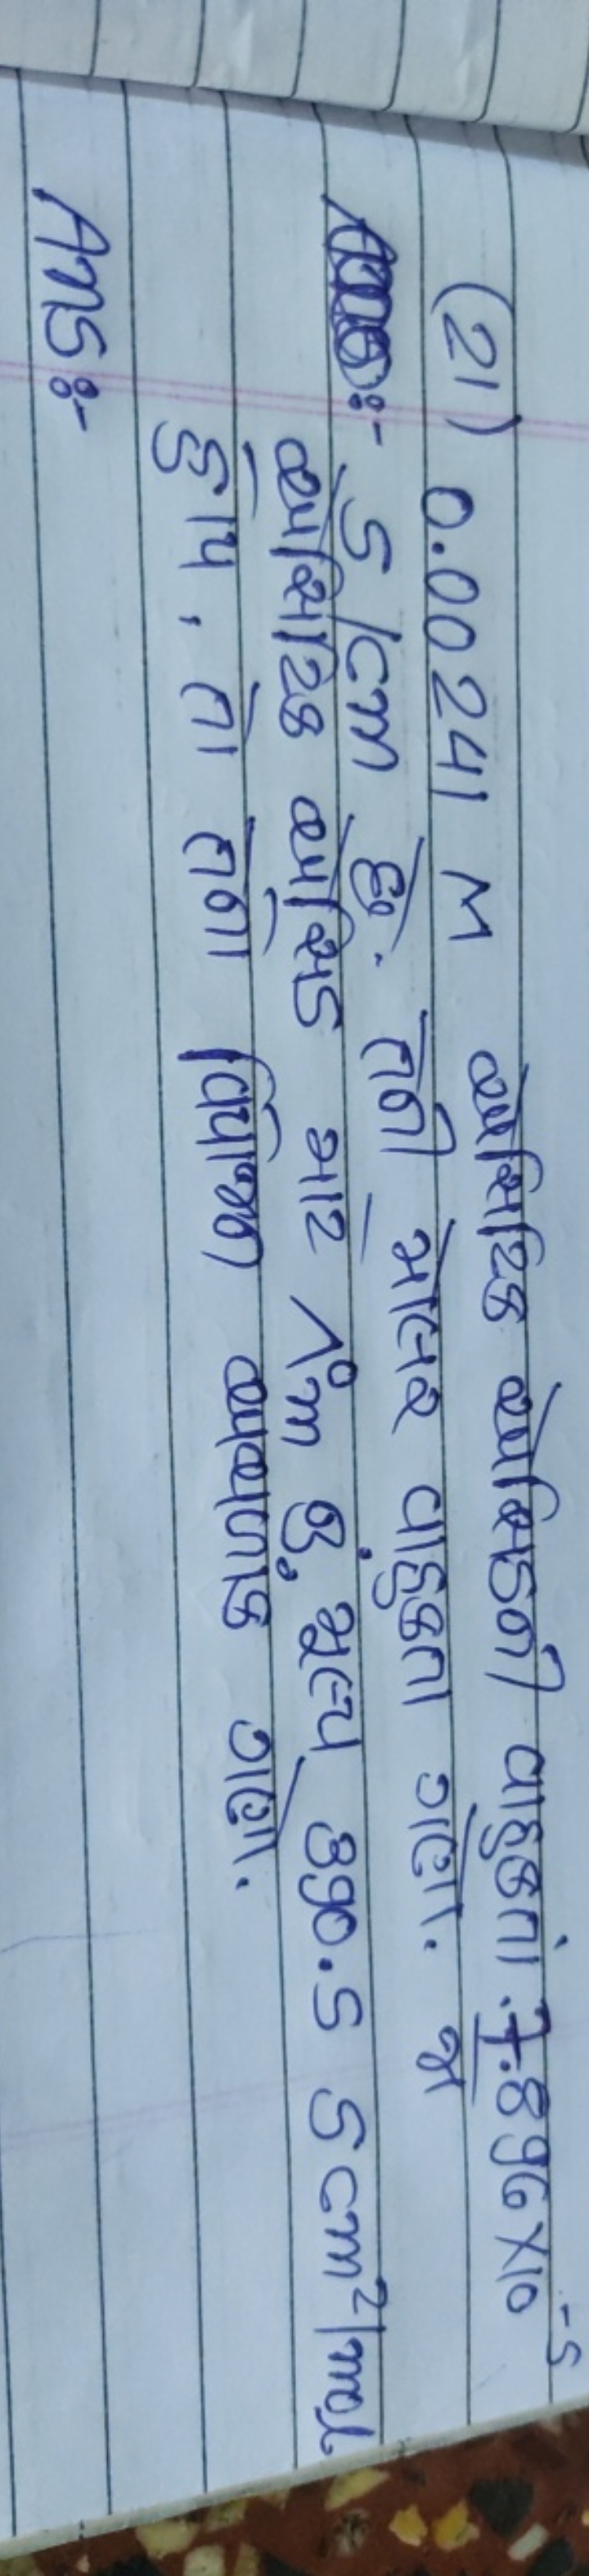 (21) 0.00241 M એસિટિક એસિડની વાહકતા 7.896×10⁻⁵
S/cm છે. તેની મોલર વાંહકતા ગણો. જો
એસિટિક એસિડ માટે Λ°m નું મૂલ્ય 390.5 S cm²/mol
હોય, તો તેનો વિયોજન અચળાંક ગણો.
Ans:-